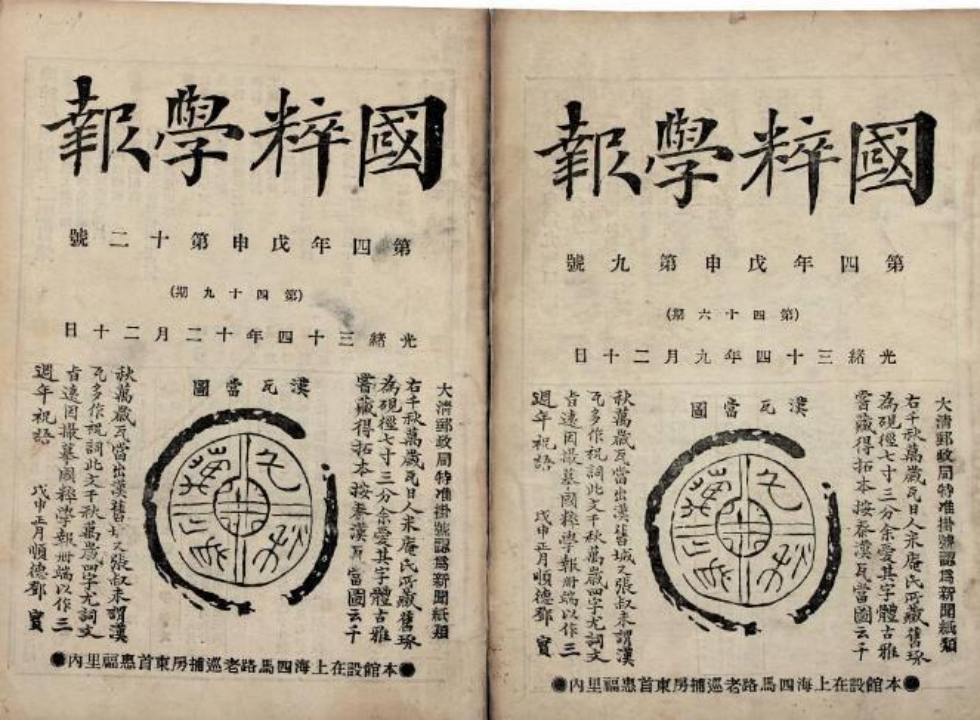 國粹學報
第四年戊申第九號
(第四十六期)
光緒三十四年九月二十日
大清郵政局特准掛號認爲新聞紙類
右千秋萬歲瓦日人米庵氏所藏舊琢
為硯徑七寸三分余愛其字體古雅
嘗藏得拓本按秦漢瓦當圖云千
漢瓦當圖
千秋萬歲
秋萬歲瓦當出漢舊城又張叔未謂漢
瓦多作祝詞此文千秋萬歲四字尤詞文
旨遠因撮摹國粹學報册端以作三
週年祝語 戊申正月順德鄧實
●本館設在上海四馬路老巡捕房東首惠福里內●
國粹學報
第四年戊申第十二號
(第四十九期)
光緒三十四年十二月二十日
大清郵政局特准掛號認爲新聞紙類
右千秋萬歲瓦日人米庵氏所藏舊琢
為硯徑七寸三分余愛其字體古雅
嘗藏得拓本按秦漢瓦當圖云千
漢瓦當圖
千秋萬歲
秋萬歲瓦當出漢舊城又張叔未謂漢
瓦多作祝詞此文千秋萬歲四字尤詞文
旨遠因撮摹國粹學報册端以作三
週年祝語 戊申正月順德鄧實
●本館設在上海四馬路老巡捕房東首惠福里內●